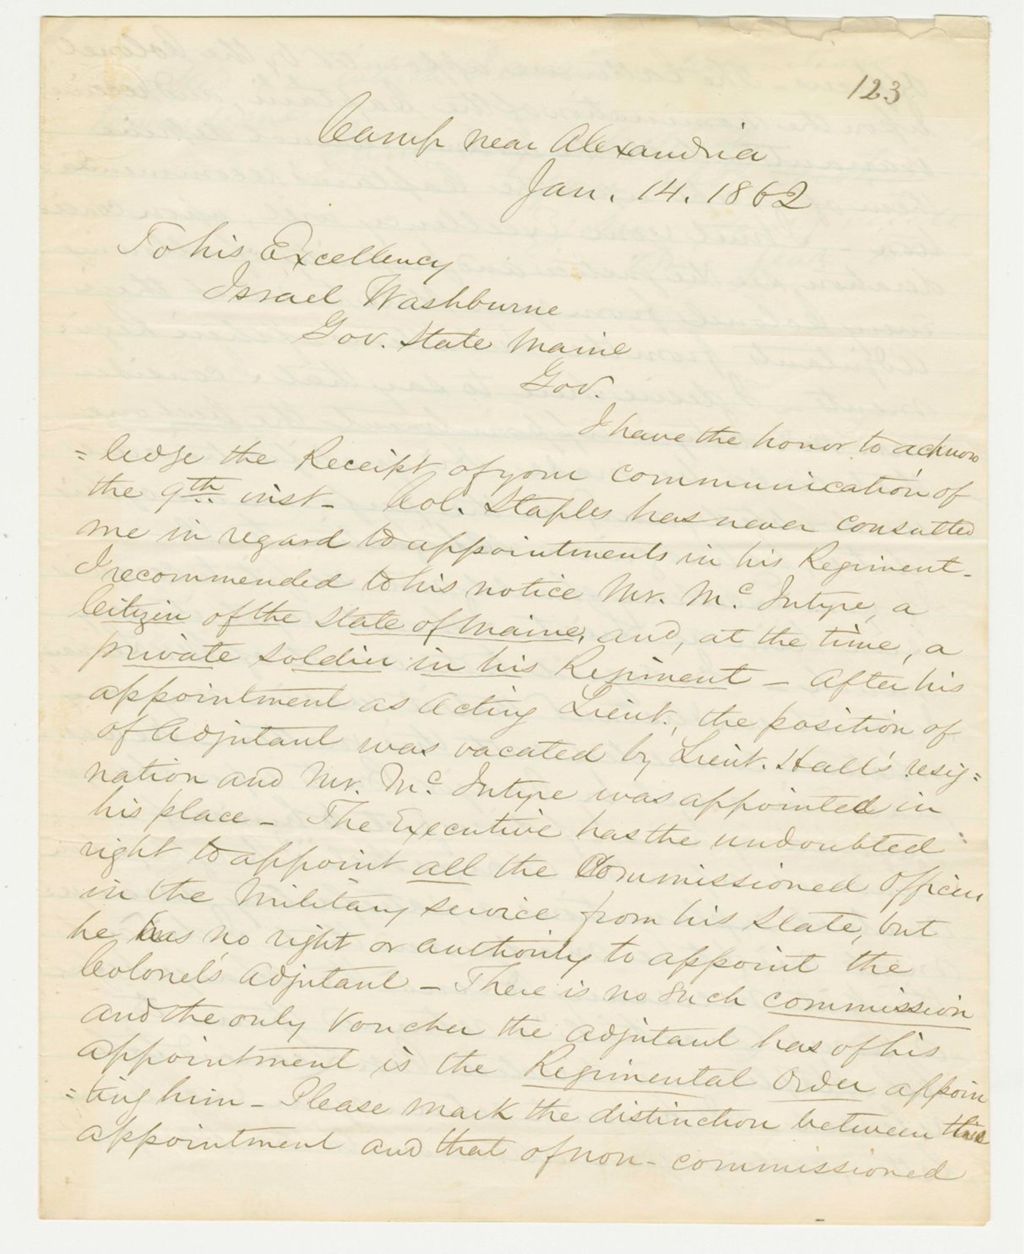 123
Camp near Alexandria
Jan. 14. 1862
To his Excellency
Israel Washburne
Gov. State Maine
Gov.
I have the honor to acknow
=ledge the Receipt of your communication of
the 9th inst - Col. Staples has never consulted
me in regard to appointments in his Regiment -
I recommended to his notice Mr. Mc Intyre, a
Citizen of the State of Maine, and, at the time, a
private soldier in his Regiment - After his
appointment as Acting Lieut., the position of
of Adjutant was vacated by Lieut. Hall's resig=
nation and Mr. Mc Intyre was appointed in
his place - The Executive has the undoubted
right to appoint all the Commissioned Officers
in the Military service from his State, but
he has no right or authority to appoint the
Colonel's Adjutant - There is no such commission
and the only voucher the adjutant has of his
appointment is the Regimental Order appoin
=ting him - Please mark the distinction between this
appointment and that of non-commissioned